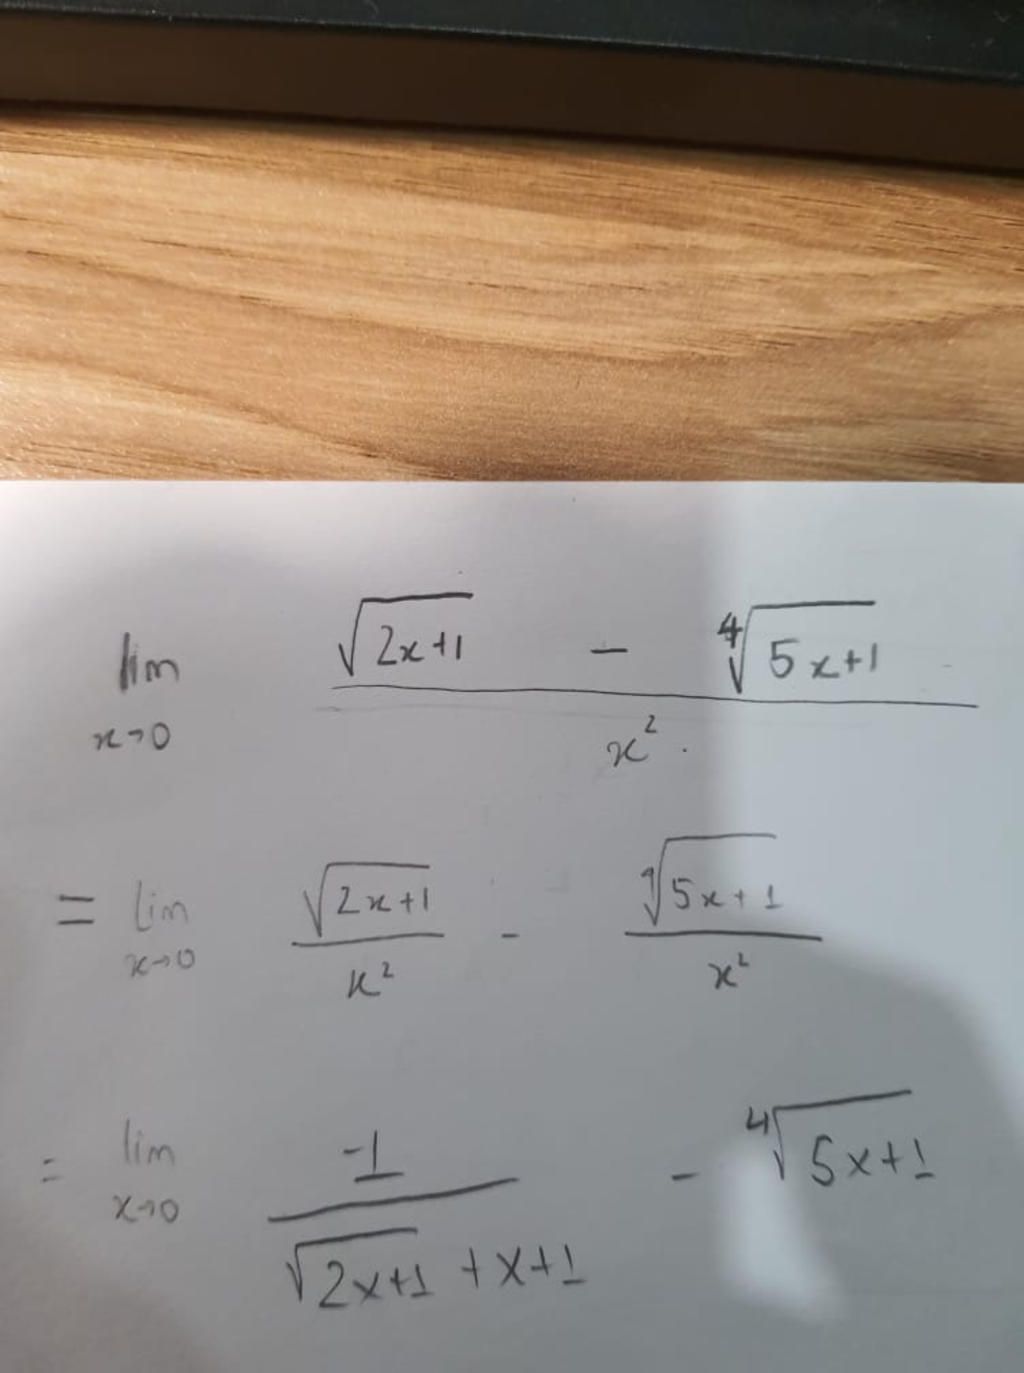 lim x→0 (√(2x+1) - ⁴√(5x+1)) / x² .
= lim x→0 √(2x+1) / x² - ⁴√(5x+1) / x²
= lim x→0 -1 / (√(2x+1) + x+1) - ⁴√(5x+1)